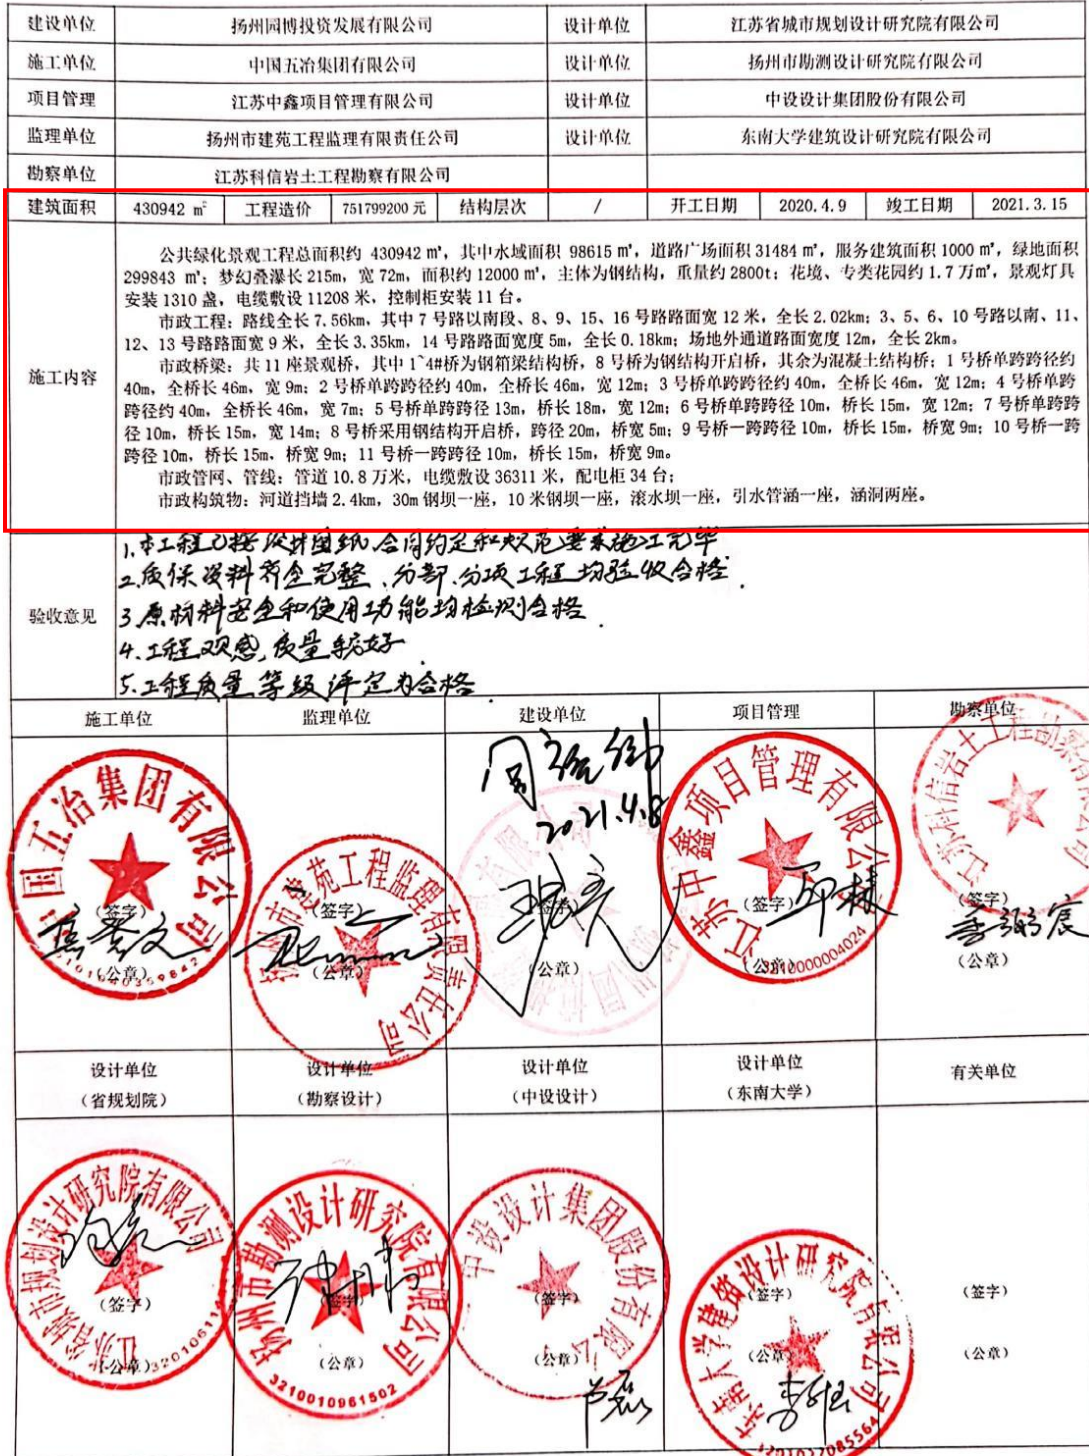 建设单位 扬州园博投资发展有限公司 设计单位 江苏省城市规划设计研究院有限公司
施工单位 中国五冶集团有限公司 设计单位 扬州市勘测设计研究院有限公司
项目管理 江苏中鑫项目管理有限公司 设计单位 中设设计集团股份有限公司
监理单位 扬州市建苑工程监理有限责任公司 设计单位 东南大学建筑设计研究院有限公司
勘察单位 江苏科信岩土工程勘察有限公司
建筑面积 430942 ㎡ 工程造价 751799200 元 结构层次 / 开工日期 2020.4.9 竣工日期 2021.3.15
施工内容
公共绿化景观工程总面积约 430942 ㎡，其中水域面积 98615 ㎡，道路广场面积 31484 ㎡，服务建筑面积 1000 ㎡，绿地面积
299843 ㎡；梦幻叠瀑长 215m，宽 72m，面积约 12000 ㎡，主体为钢结构，重量约 2800t；花境、专类花园约 1.7 万㎡，景观灯具
安装 1310 盏，电缆敷设 11208 米，控制柜安装 11 台。
市政工程：路线全长 7.56km，其中 7 号路以南段、8、9、15、16 号路路面宽 12 米，全长 2.02km；3、5、6、10 号路以南、11、
12、13 号路路面宽 9 米，全长 3.35km，14 号路路面宽度 5m，全长 0.18km；场地外通道路面宽度 12m，全长 2km。
市政桥梁：共 11 座景观桥，其中 1~4#桥为钢箱梁结构桥，8 号桥为钢结构开启桥，其余为混凝土结构桥；1 号桥单跨跨径约
40m，全桥长 46m，宽 9m；2 号桥单跨跨径约 40m，全桥长 46m，宽 12m；3 号桥单跨跨径约 40m，全桥长 46m，宽 12m；4 号桥单跨
跨径约 40m，全桥长 46m，宽 7m；5 号桥单跨跨径 13m，桥长 18m，宽 12m；6 号桥单跨跨径 10m，桥长 15m，宽 12m；7 号桥单跨跨
径 10m，桥长 15m，宽 14m；8 号桥采用钢结构开启桥，跨径 20m，桥宽 5m；9 号桥一跨跨径 10m，桥长 15m，桥宽 9m；10 号桥一跨
跨径 10m，桥长 15m，桥宽 9m；11 号桥一跨跨径 10m，桥长 15m，桥宽 9m。
市政管网、管线：管道 10.8 万米，电缆敷设 36311 米，配电柜 34 台；
市政构筑物：河道挡墙 2.4km，30m 钢坝一座，10 米钢坝一座，滚水坝一座，引水管涵一座，涵洞两座。
验收意见
1.本工程已按设计图纸、合同约定和规范要求施工完毕
2.质保资料齐全完整、分部、分项工程均验收合格.
3.原材料安全和使用功能均检测合格.
4.工程观感,质量较好.
5.工程质量等级评定为合格.
施工单位 监理单位 建设单位 项目管理 勘察单位
2021.4.8
中国五冶集团有限公司
扬州市建苑工程监理有限责任公司
江苏中鑫项目管理有限公司
3210000004024
江苏科信岩土工程勘察有限公司
(签字) (签字) (签字) (签字) (签字)
(公章) (公章) (公章) (公章) (公章)
设计单位 设计单位 设计单位 设计单位 有关单位
(省规划院) (勘察设计) (中设设计) (东南大学)
江苏省城市规划设计研究院有限公司
扬州市勘测设计研究院有限公司
3210010961502
中设设计集团股份有限公司
东南大学建筑设计研究院有限公司
(签字) (签字) (签字) (签字) (签字)
(公章) (公章) (公章) (公章) (公章)